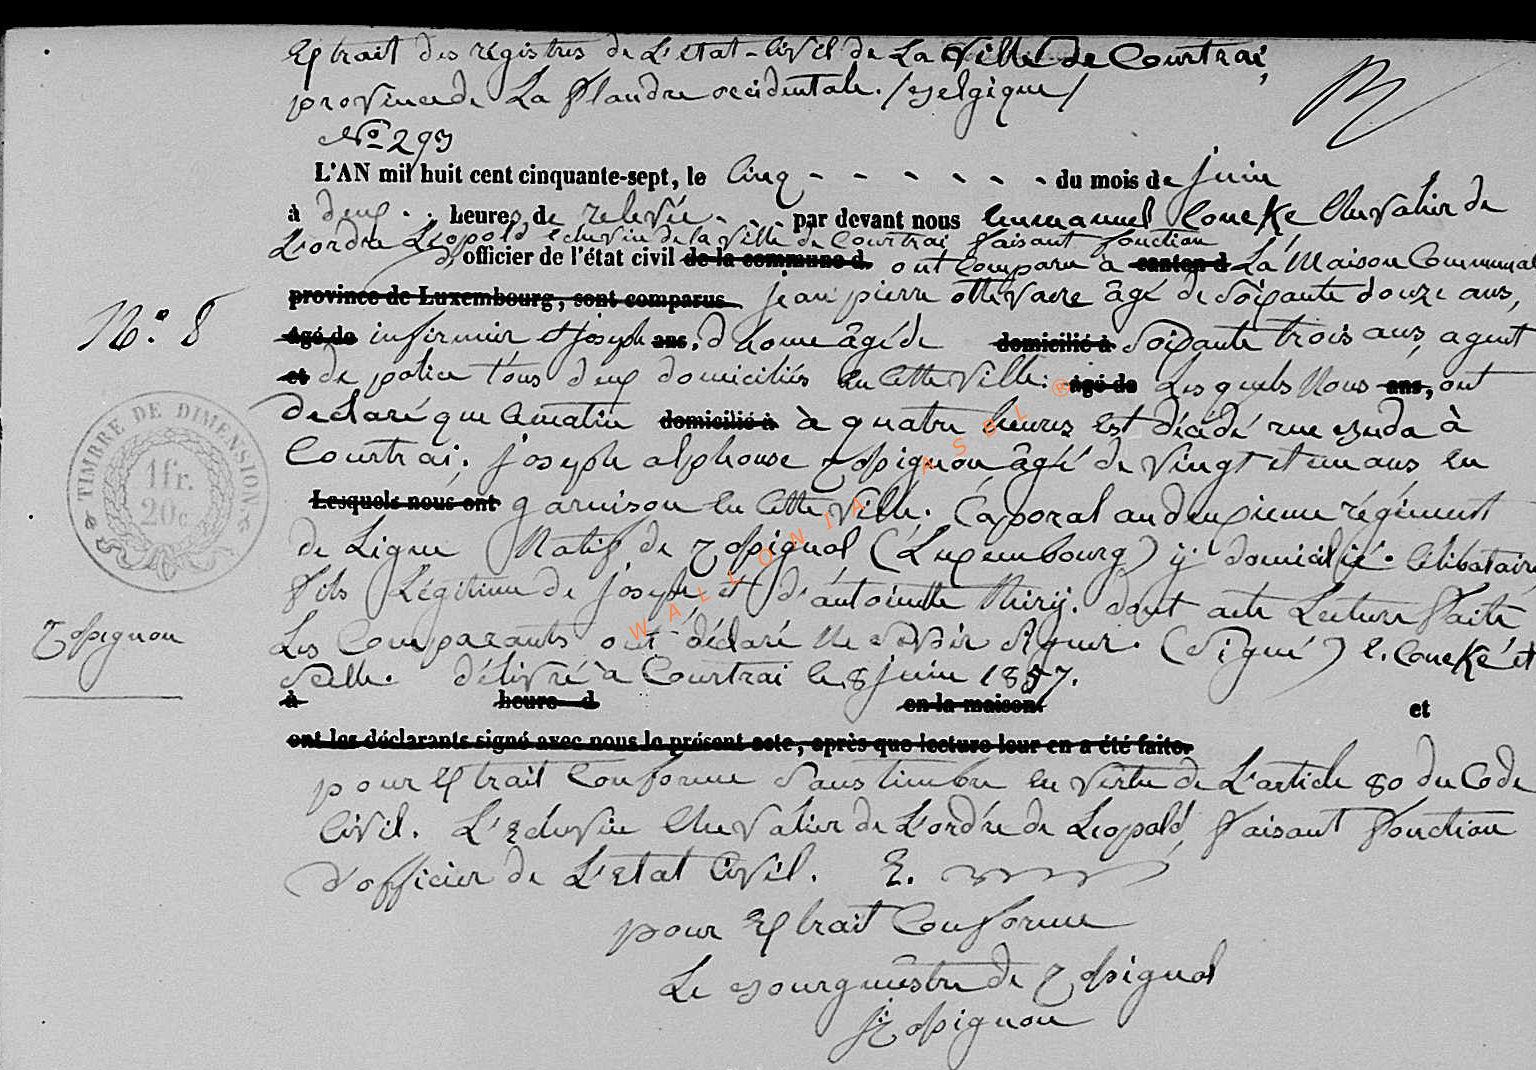 Extrait des régistres de L'état-Civil de La Ville de Courtrai,
province de La Flandre occidentale. /Belgique/
N° 293
L'AN mil huit cent cinquante-sept, le Cinq - - - - - - - du mois de juin
à deux . . heures de relevée - . . par devant nous Emmanuel Concke Chevalier de
L'ordre Léopold Echevin de la Ville de Courtrai faisant fonction
d' officier de l'état civil de la commune d. ont Comparu à canton d La Maison Communale
province de Luxembourg, sont comparus jean pierre ottevaere âgé de Soixante douze ans,
N°. 8
âgé de infirmier et joseph ans, d'home âgé de domicilié à Soixante trois ans, agent
et de police tous deux domiciliés en Cette Ville. âgé de Lesquels Nous ans, ont
declaré que Cematin domicilié à à quatre heures Est décédé rue Buda à
Courtrai, joseph alphonse Zopignon, âgé de Vingt et un ans en
Lesquels nous ont garnison en Cette Ville. Caporal au deuxieme régiment
TIMBRE DE DIMENSION
1fr.
20c
de Ligne Natif de (Luxembourg) y domicilié. Célibataire
fils Légitime de joseph et d'antoinette thiry. dont acte Lecture Faite
pignon
Les Comparants ont déclaré Ne Savoir Signer. (Signé) E. Concké et
délivré à Courtrai le 8 juin 1857.
à heure d en la maison et
ont les déclarants signé avec nous le présent acte, après que lecture leur en a été faite.
pour Extrait Conforme Sans timbre en Vertu de L'article 80 du Code
Civil. L'Echevin Chevalier de L'ordre de Léopold, Faisant Fonction
d'officier de L'Etat Civil. E.
pour Extrait Conforme
Le Bourgmestre de
WALLONIA ASBL ®